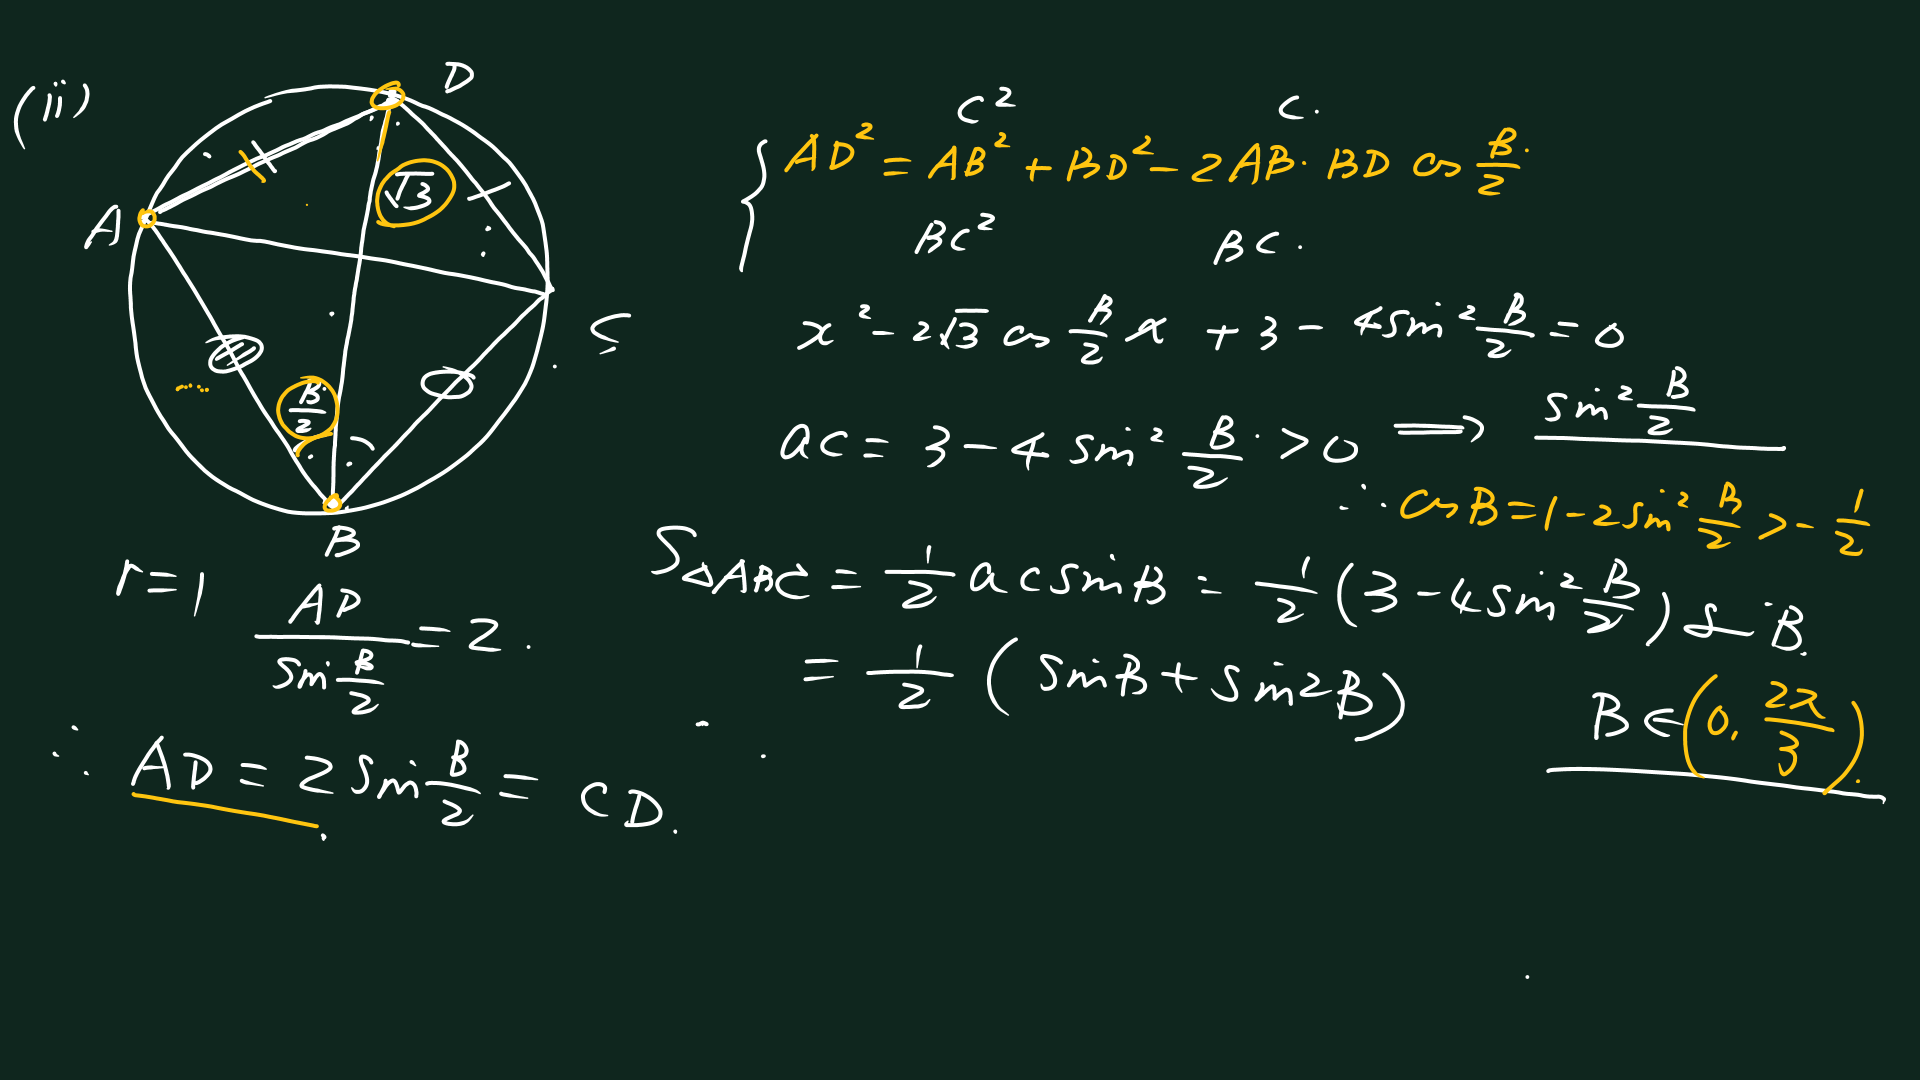 (ii)
D
A
C
B
√3
B/2
r = 1
AD / sin B/2 = 2.
∴ AD = 2 sin B/2 = CD.
C² C.
AD² = AB² + BD² - 2AB · BD cos B/2
BC² BC.
x² - 2√3 cos B/2 x + 3 - 4 sin² B/2 = 0
ac = 3 - 4 sin² B/2 > 0 ⟹ sin² B/2
∴ cos B = 1 - 2 sin² B/2 > - 1/2
S△ABC = 1/2 ac sin B = 1/2 (3 - 4 sin² B/2) sin B.
= 1/2 (sin B + sin 2B)
B ∈ (0, 2π/3).